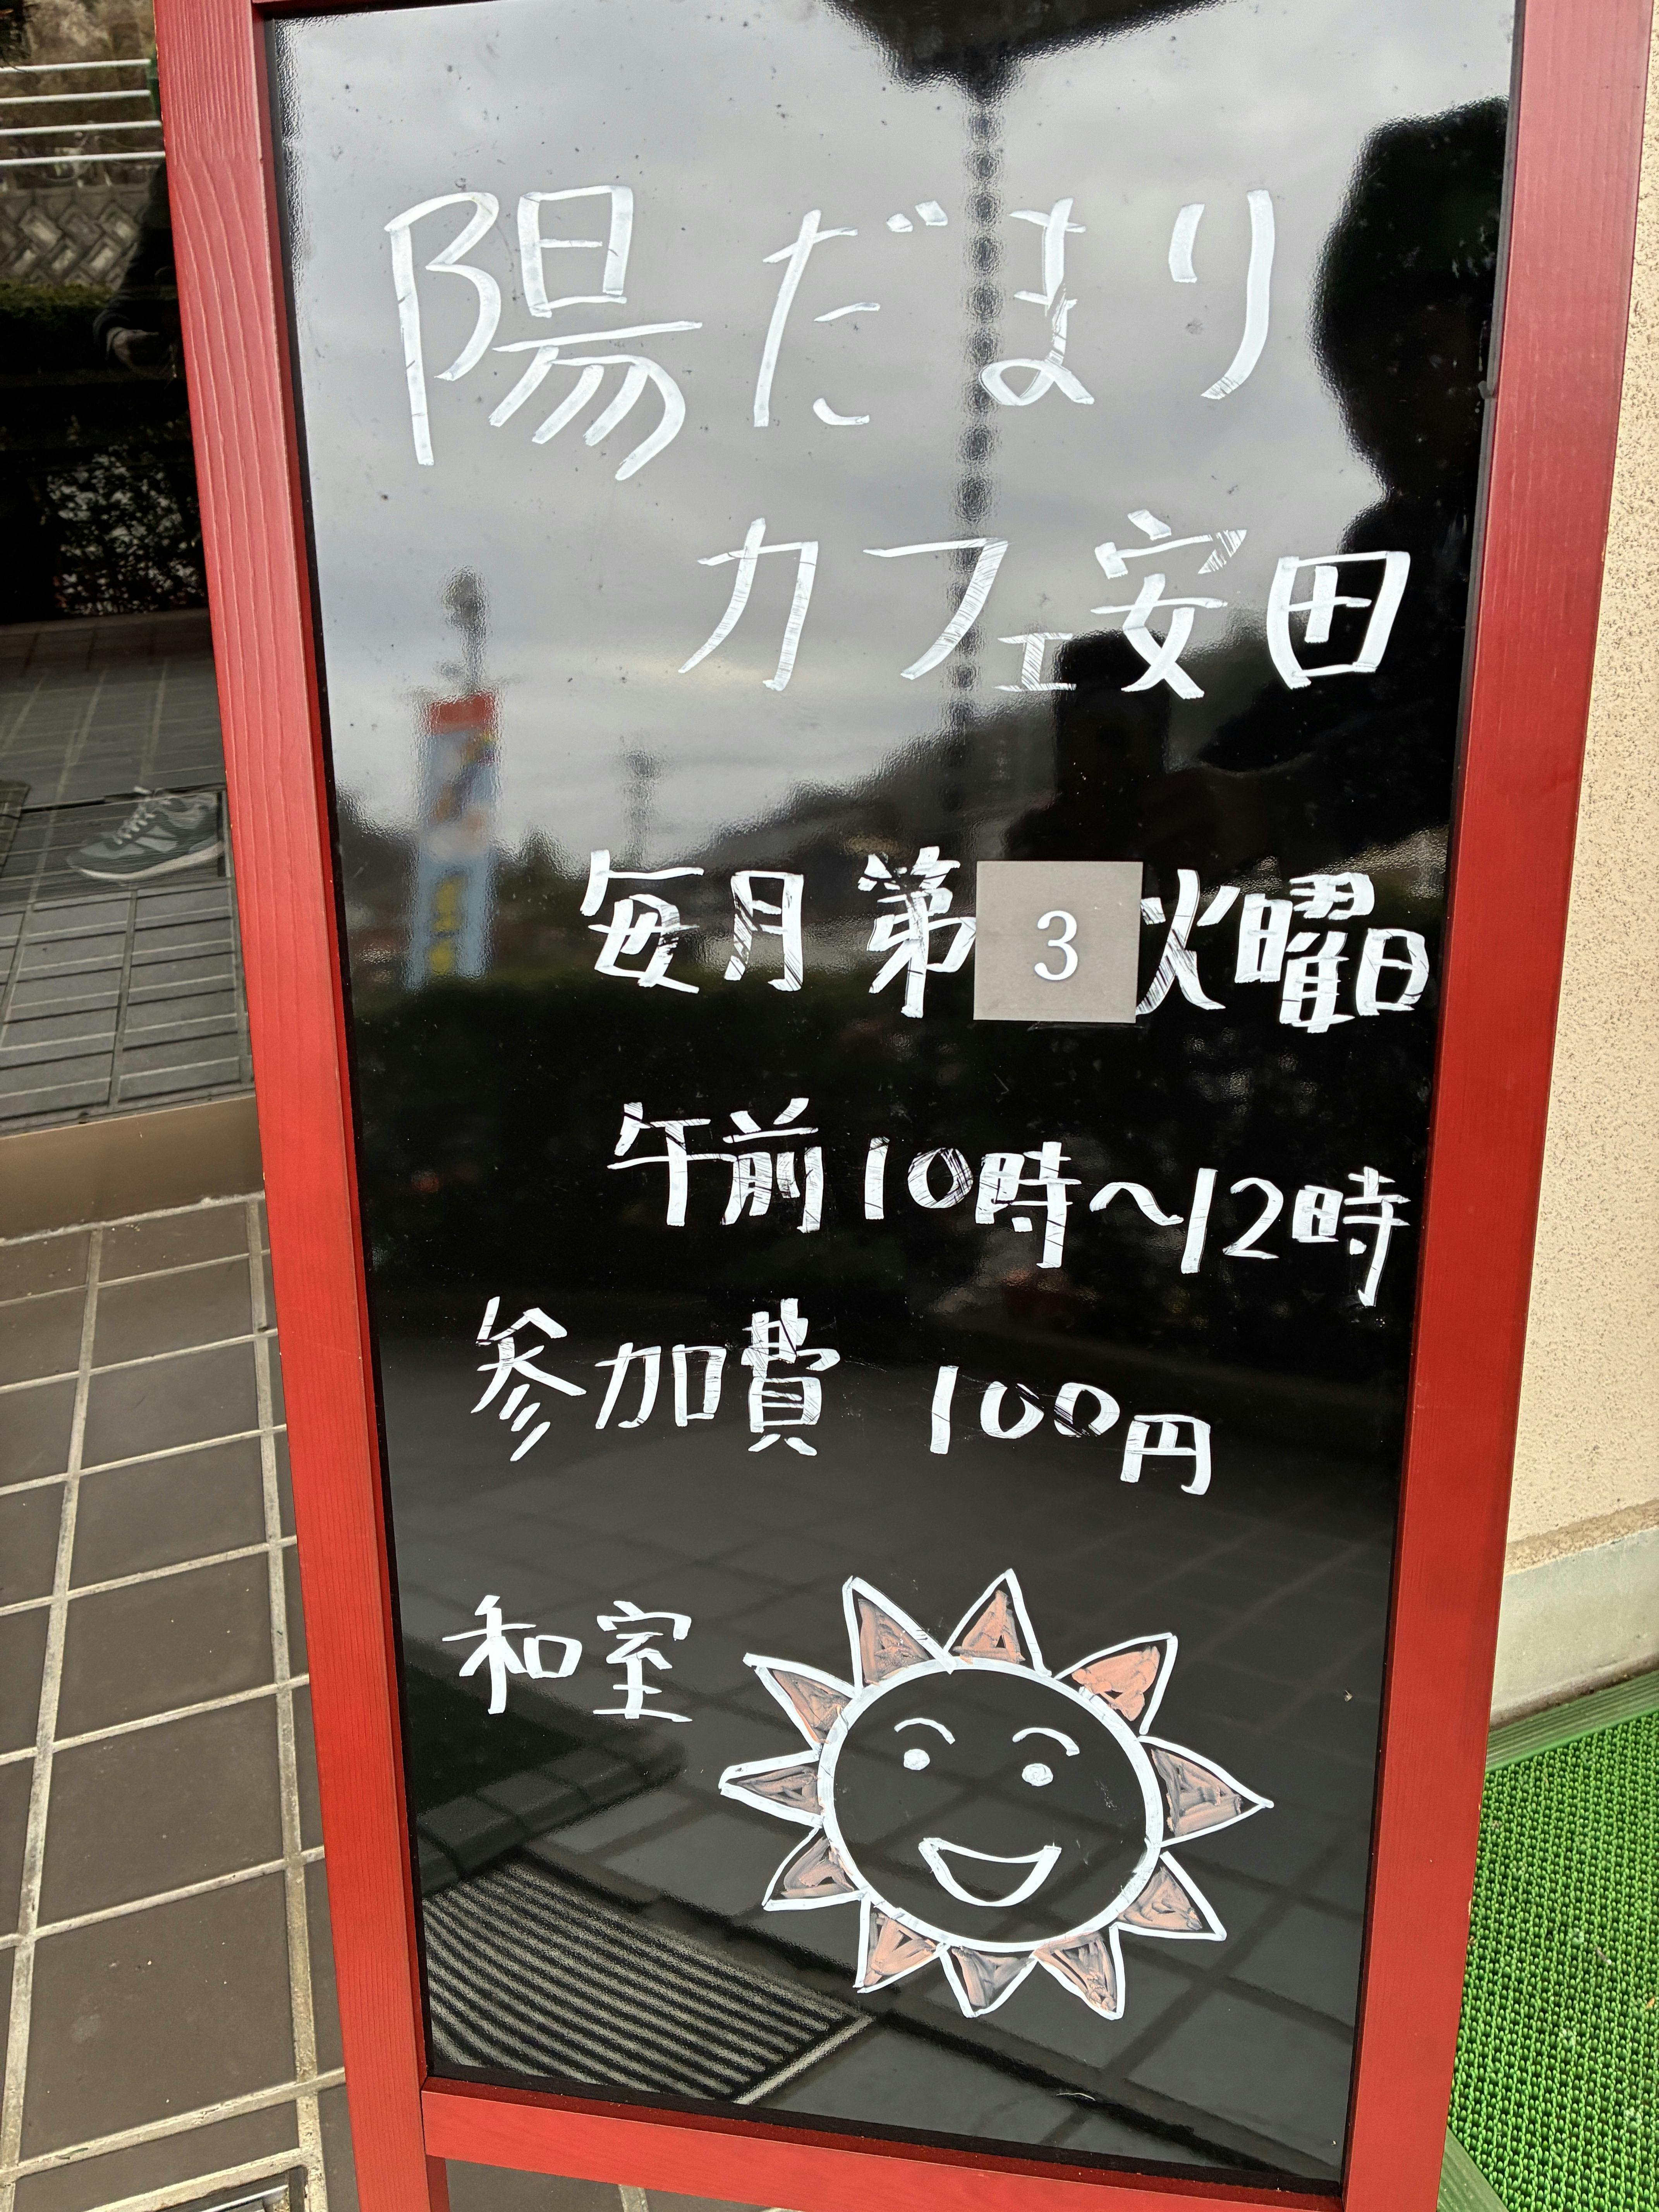 陽だまり
カフェ安田
毎月第3火曜日
午前10時～12時
参加費 100円
和室